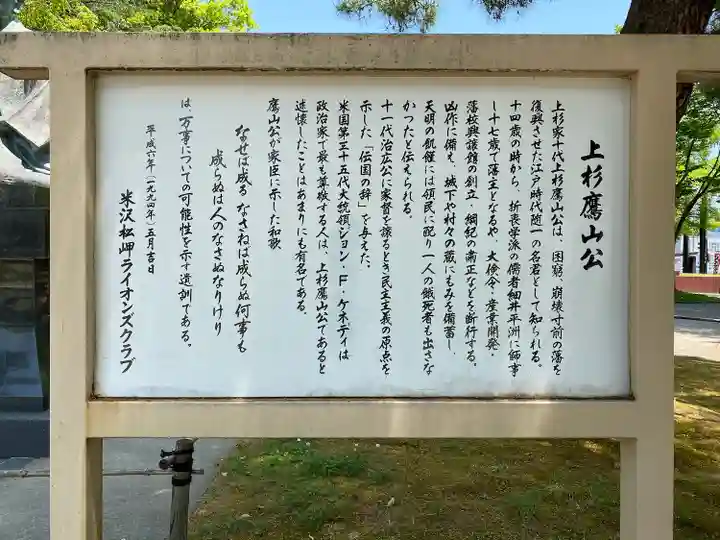 上杉鷹山公
上杉家十代上杉鷹山公は、困窮、崩壊寸前の藩を
復興させた江戸時代随一の名君として知られる。
十四歳の時から、折衷学派の儒者細井平洲に師事
し十七歳で藩主となるや、大倹令・産業開発・
藩校興譲館の創立、綱紀の粛正などを断行する。
凶作に備え、城下や村々の蔵にもみを備蓄し、
天明の飢饉には領民に配り一人の餓死者も出さな
かつたと伝えられる。
十一代治広公に家督を譲るとき民主主義の原点を
示した「伝国の辞」を与えた。
米国第三十五代大統領ジョン・F・ケネディは
政治家で最も尊敬する人は、上杉鷹山公であると
述懐したことはあまりにも有名である。
鷹山公が家臣に示した和歌
なせば成る なさねば成らぬ何事も
成らぬは人のなさぬなりけり
は、万事についての可能性を示す遺訓である。
平成六年(一九九四年)五月吉日
米沢松岬ライオンズクラブ